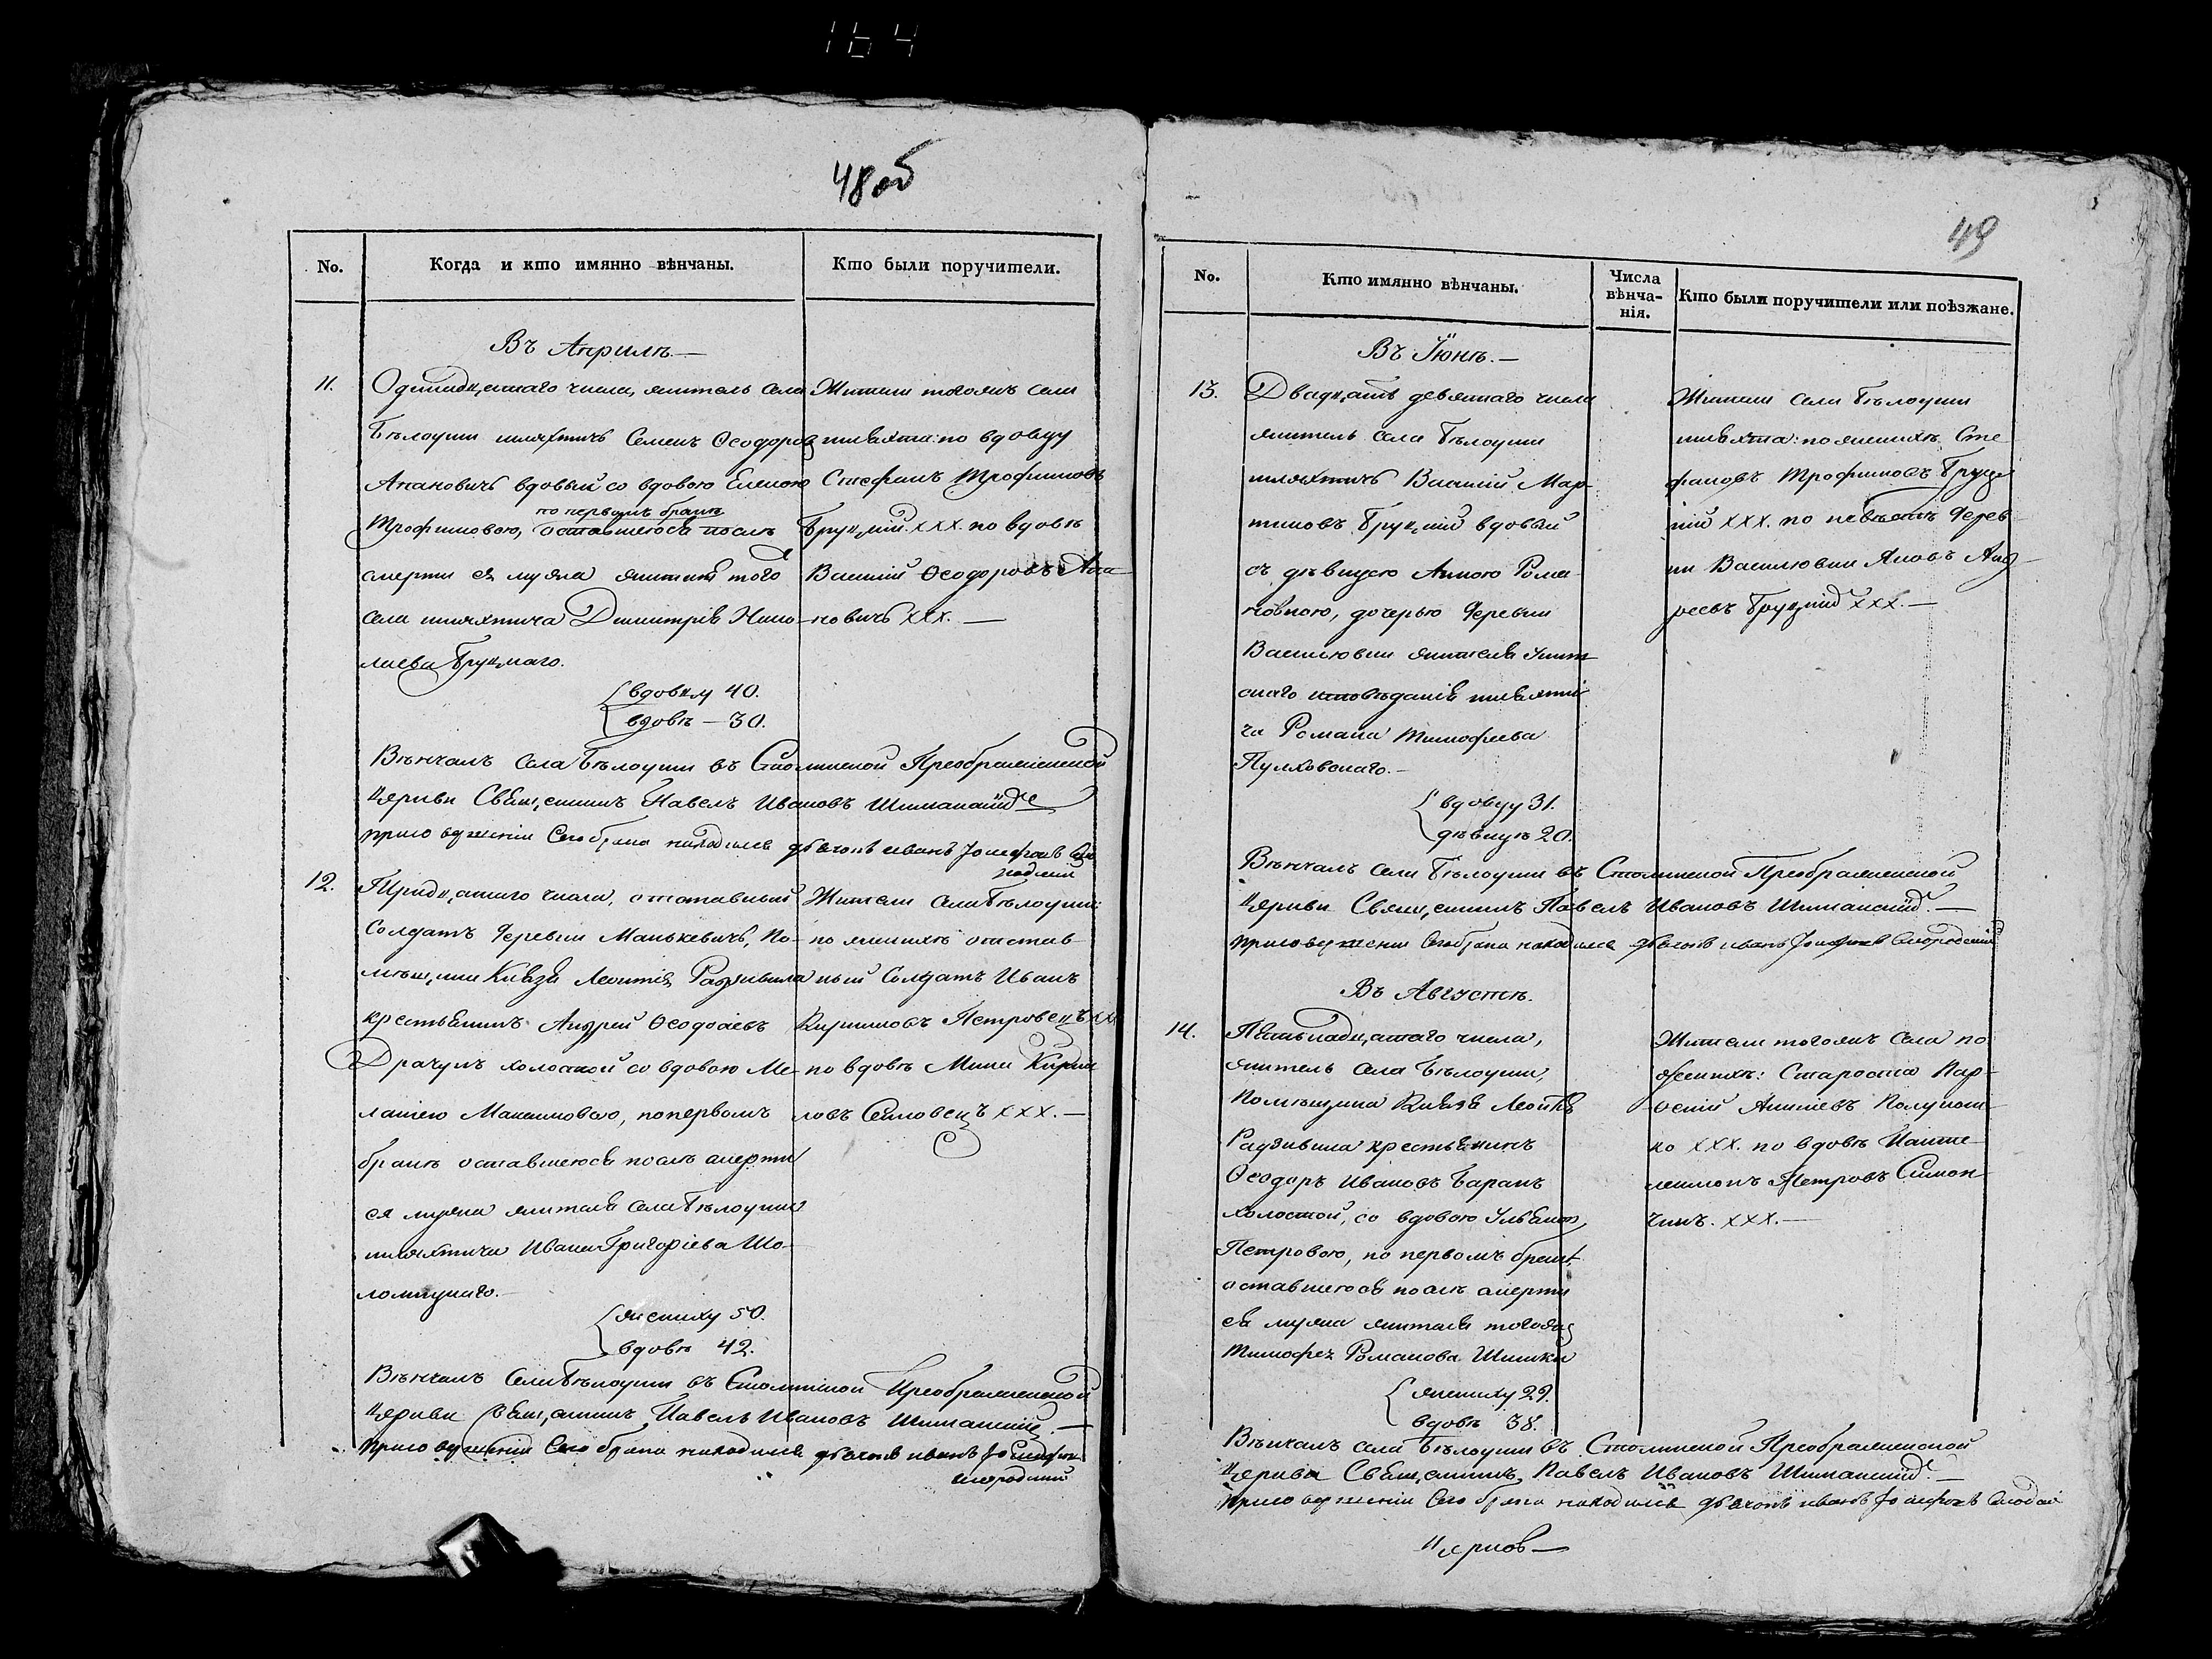 164
48об
No.
Когда и кто имянно вѣнчаны.
Кто были поручители.
Въ Априлѣ.—
11.
Одинадцатаго числа, житель села
Бѣлоуши шляхтичъ Семенъ Ѳеодоров
Апановичъ вдовый со вдовою Еленою
по первомъ бракѣ
Трофимовою, оставшеюся послѣ
смерти ея мужа жителя того
села шляхтича Димитрія Нико-
лаева Бруцкаго.
вдовцу 40.
вдовѣ — 30.
Жители тогожъ села
шляхта: по вдовцу
Стефанъ Трофимовъ
Бруцкій. ХХХ. по вдовѣ
Василій Ѳеодоровъ Апа-
новичъ ХХХ.—
Вѣнчалъ села Бѣлоуши въ Столинской Преображенской
Церкви Священникъ Павелъ Ивановъ Шиманскій
при совершеніи Сего брака находился дьячокъ иванъ Іосифовъ
12.
Тридцатаго числа, отставный
Солдатъ деревни Манькевичъ, По-
мѣщика Князя Леонтія Радзивила
крестьянинъ Андрей Ѳеодоровъ
Драчукъ холостой со вдовою Ме-
ланіею Максимовою, по первомъ
бракѣ оставшеюся послѣ смерти
ея мужа жителя села Бѣлоуши
шляхтича Ивана Григоріева Шо-
ломицкаго.—
жениху 50.
вдовѣ 42.
Жители села Бѣлоуши:
по женихѣ отстав-
ный Солдатъ Иванъ
Кириловъ Петровецъ ХХ
по вдовѣ Мина Кири-
ловъ ХХХ.—
Вѣнчалъ Села Бѣлоуши въ Столинской Преображенской
Церкви Священникъ Павелъ Ивановъ Шиманскій.—
при совершеніи Сего брака находился дьячокъ иванъ
49
No.
Кто имянно вѣнчаны.
Числа
вѣнча-
нія.
Кто были поручители или поѣзжане.
Въ Іюнѣ.—
13.
Двадцать девятаго числа
житель села Бѣлоуши
шляхтичъ Василій Мар-
тиновъ Бруцкій вдовый
съ дѣвицею Анною Рома-
новною, дочерью деревни
Васильовки жителя Уніят
скаго исповѣданія шляхти-
ча Романа Тимофеева
Пулховскаго.—
вдовцу 31.
дѣвицѣ 20.
Жители села Бѣлоуши
шляхта: по женихѣ Сте
фановъ Трофимовъ Бруц
кій ХХХ. по невѣстѣ дерев
ни Васильовки Яковъ Анд
реевъ Бруцкій ХХХ.—
Вѣнчалъ села Бѣлоуши въ Столинской Преображенской
Церкви Священникъ Павелъ Ивановъ Шиманскій.—
при совершеніи Сего брака находился дьячокъ иванъ Іосифовъ
Въ Августѣ.
14.
Пятьнадцатаго числа,
житель села Бѣлоуши,
Помѣщика Князя Леонтія
Радзивила крестьянинъ
Ѳеодоръ Ивановъ Баранъ
холостой, со вдовою Ульяною
Петровою, по первомъ бракѣ
оставшеюся послѣ смерти
ея мужа жителя тогожъ
Тимофея Романова Шишки
жениху 29.
вдовѣ 38.
Жители тогожъ села по
женихѣ: Староста Пар-
ѳеній
ко ХХХ. по вдовѣ Панте
леимонъ Петровъ Симон
чикъ. ХХХ.—
Вѣнчалъ села Бѣлоуши въ Столинской Преображенской
Церкви Священникъ Павелъ Ивановъ Шиманскій.—
при совершеніи Сего брака находился дьячокъ иванъ Іосифовъ
Церков—